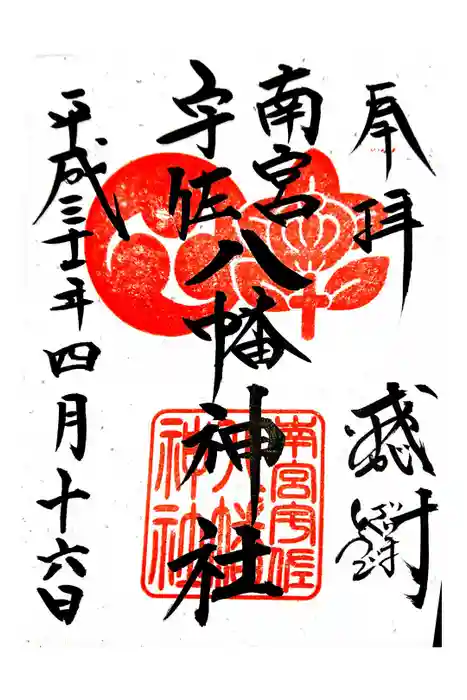 奉拝
感謝
南宮
宇佐八幡神社
平成三十一年四月十六日
南宮宇佐
八幡
神社